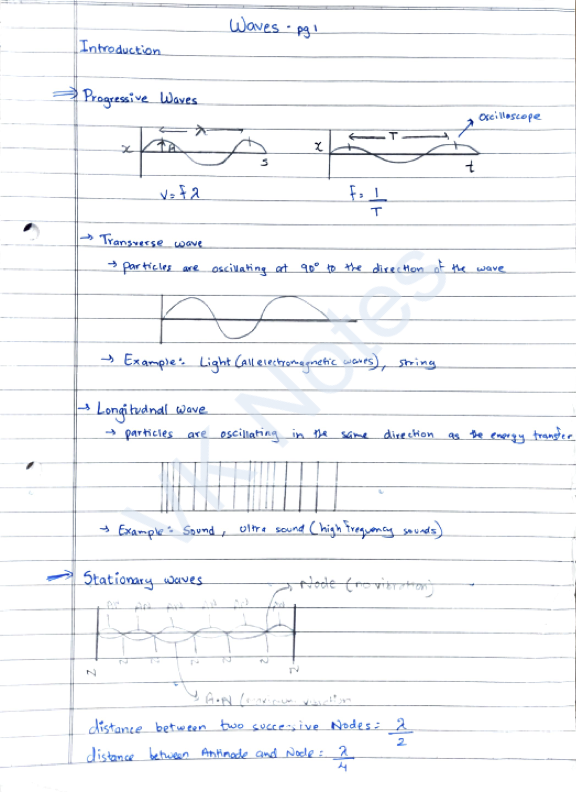 Waves - pg 1
Introduction
⇒ Progressive Waves
Oscilloscope
λ T
x A s x t
V = fλ F = 1/T
→ Transverse wave
→ particles are oscillating at 90° to the direction of the wave
→ Example:- Light (all electromagnetic waves), string
→ Longitudnal wave
→ particles are oscillating in the same direction as the energy transfer
→ Example:- Sound, Ultra sound (high frequency sounds)
⇒ Stationary waves
Node (no vibration)
AN
N N N N N N N
A.N (maximum
distance between two successive Nodes = λ/2
distance between Antinode and Node = λ/4
VK Notes